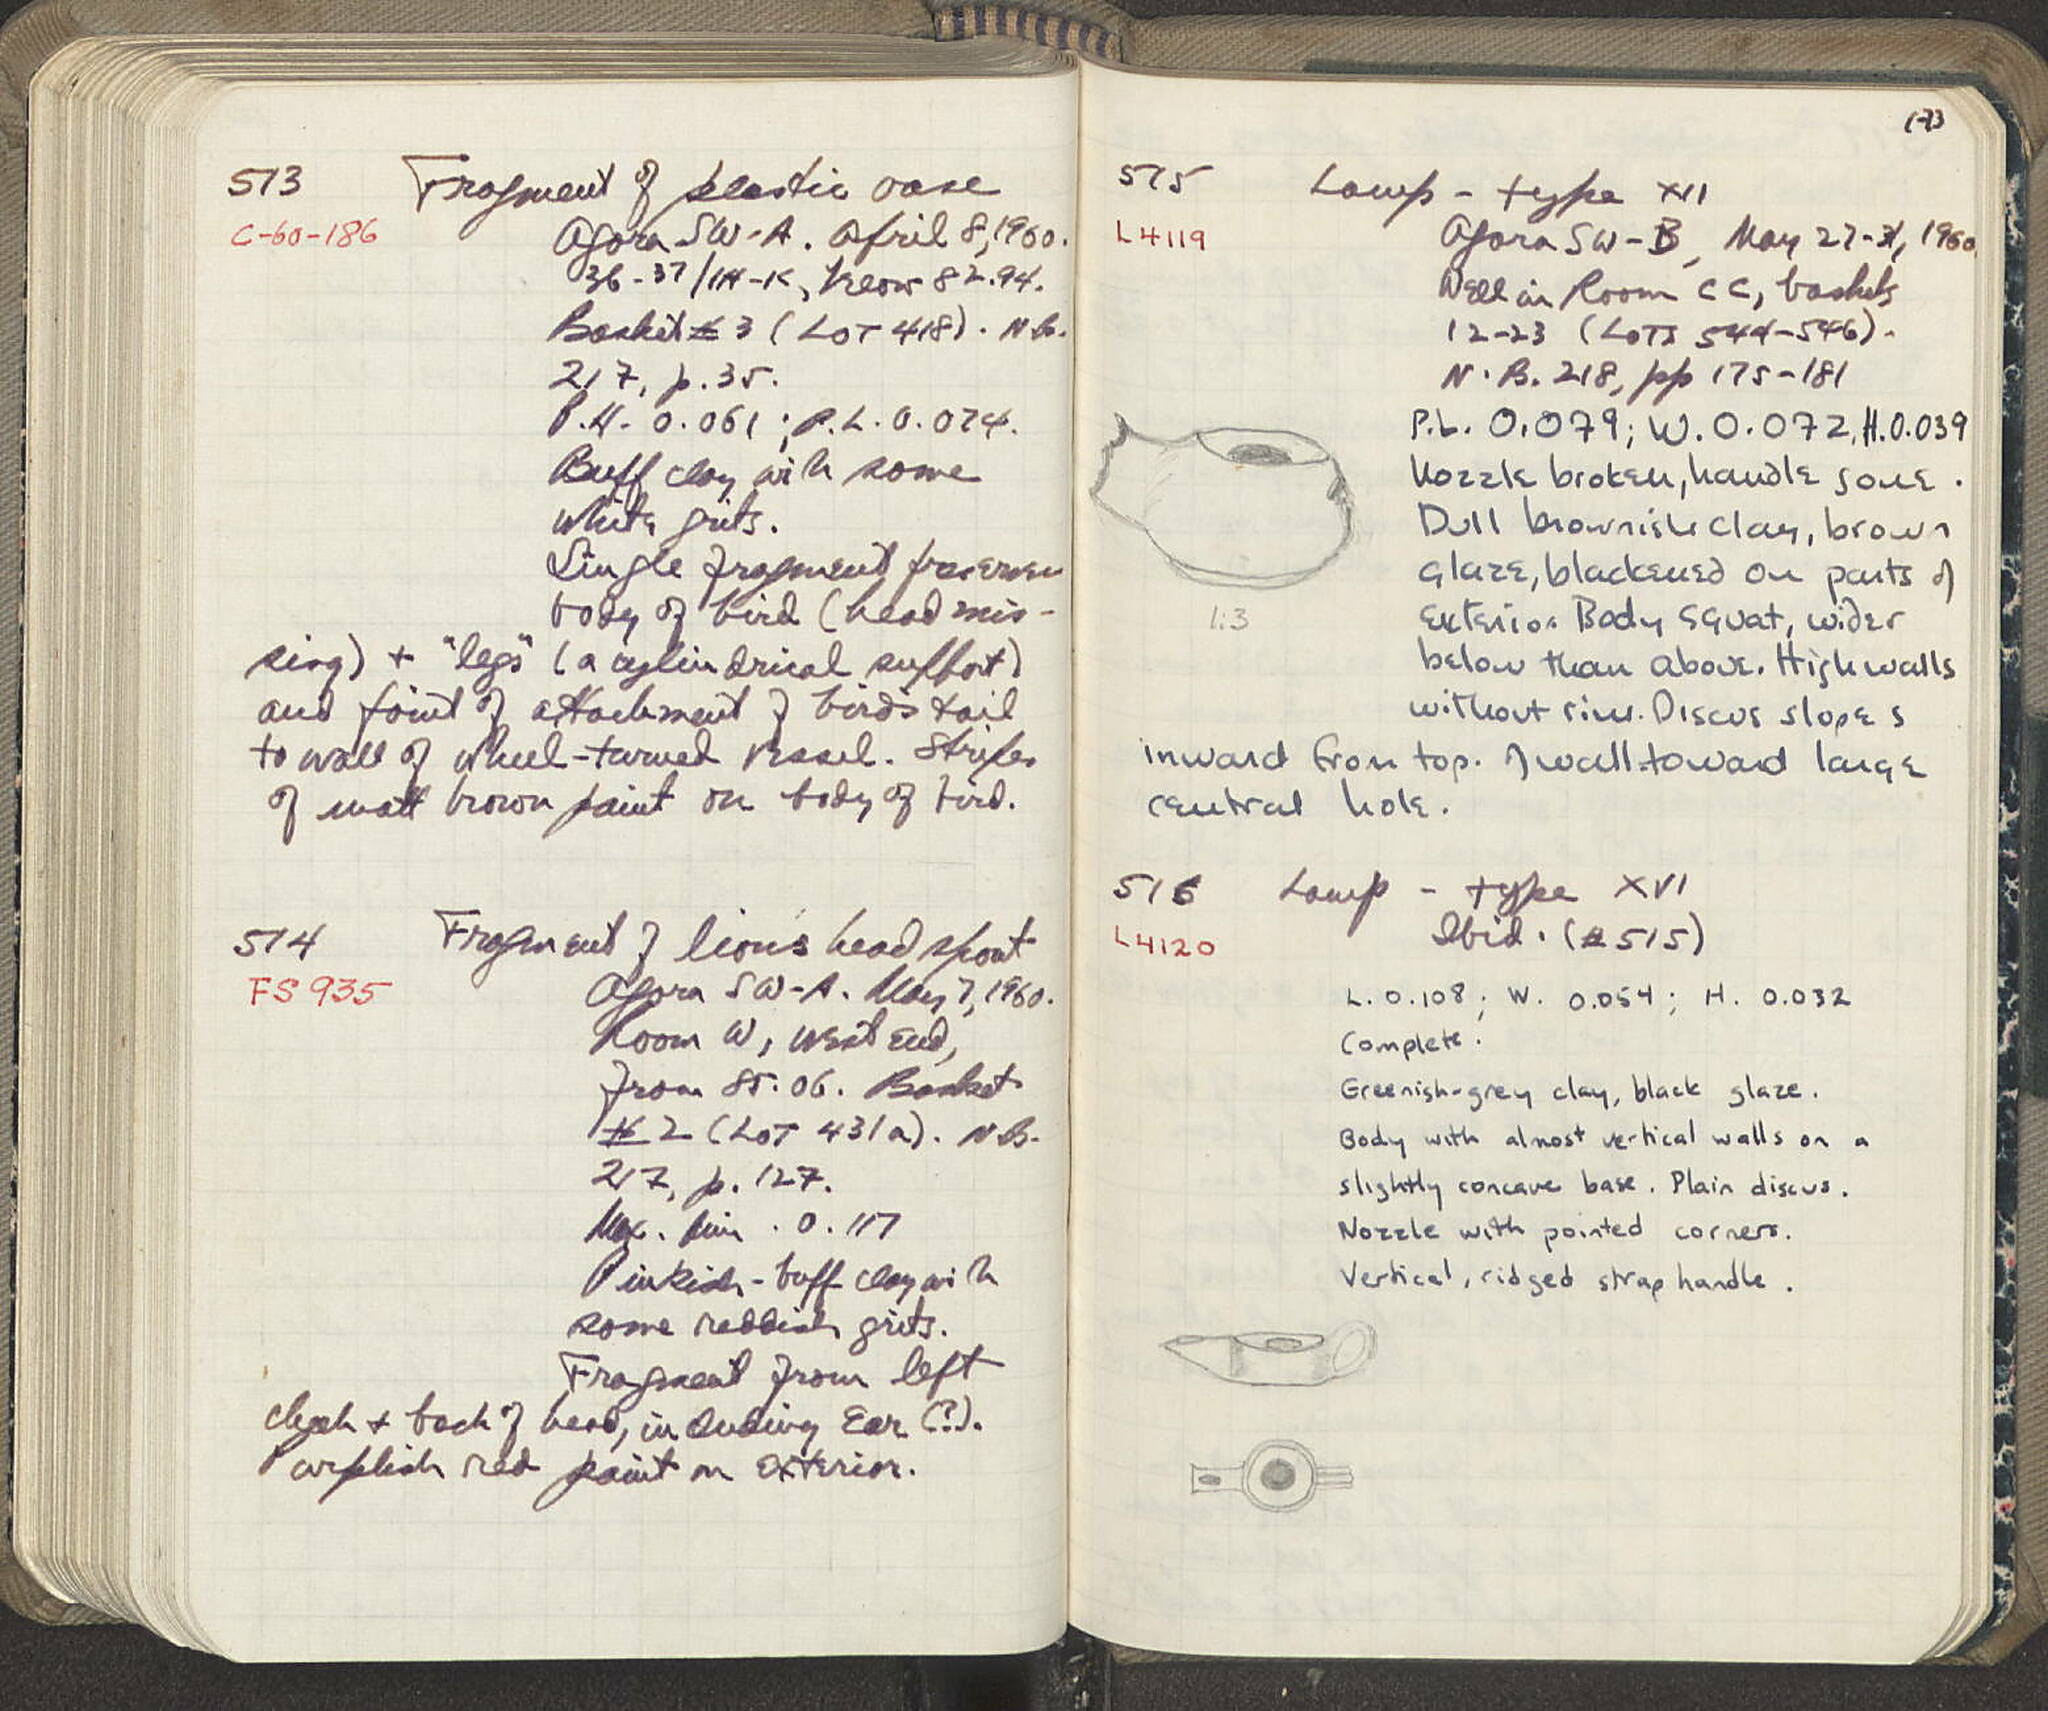 513 Fragment of plastic vase
C-60-186 Agora SW-A. April 8, 1960.
36-37/IH-K, below 82.94.
Basket # 3 (LOT 418). N.B.
217, p. 35.
P.H. 0.061; P.L. 0.074.
Buff clay with some
white grits.
Single fragment preserves
body of bird (head mis-
sing) + "legs" (a cylindrical support)
and point of attachment of bird's tail
to wall of wheel-turned vessel. Stripes
of matt brown paint on body of bird.
514 Fragment of lion's head spout
FS 935 Agora SW-A. May 7, 1960.
Room W, west end,
from 85.06. Basket
# 2 (LOT 431a). N.B.
217, p. 127.
Max. Dim. 0.117
Pinkish-buff clay with
some reddish grits.
Fragment from left
cheek + back of head, including ear (?).
Purplish red paint on exterior.
173
515 Lamp - type XVI
L4119 Agora SW-B, May 27-31, 1960.
Well in Room CC, baskets
12-23 (LOTS 544-546).
N.B. 218, pp 175-181
P.L. 0.079; W. 0.072, H. 0.039
Nozzle broken, handle gone.
Dull brownish clay, brown
glaze, blackened on parts of
exterior. Body squat, wider
below than above. High walls
without rim. Discus slopes
1:3
inward from top of wall toward large
central hole.
516 Lamp - type XVI
L4120 Ibid. (# 515)
L. 0.108; W. 0.054; H. 0.032
Complete.
Greenish-grey clay, black glaze.
Body with almost vertical walls on a
slightly concave base. Plain discus.
Nozzle with pointed corners.
Vertical, ridged strap handle.